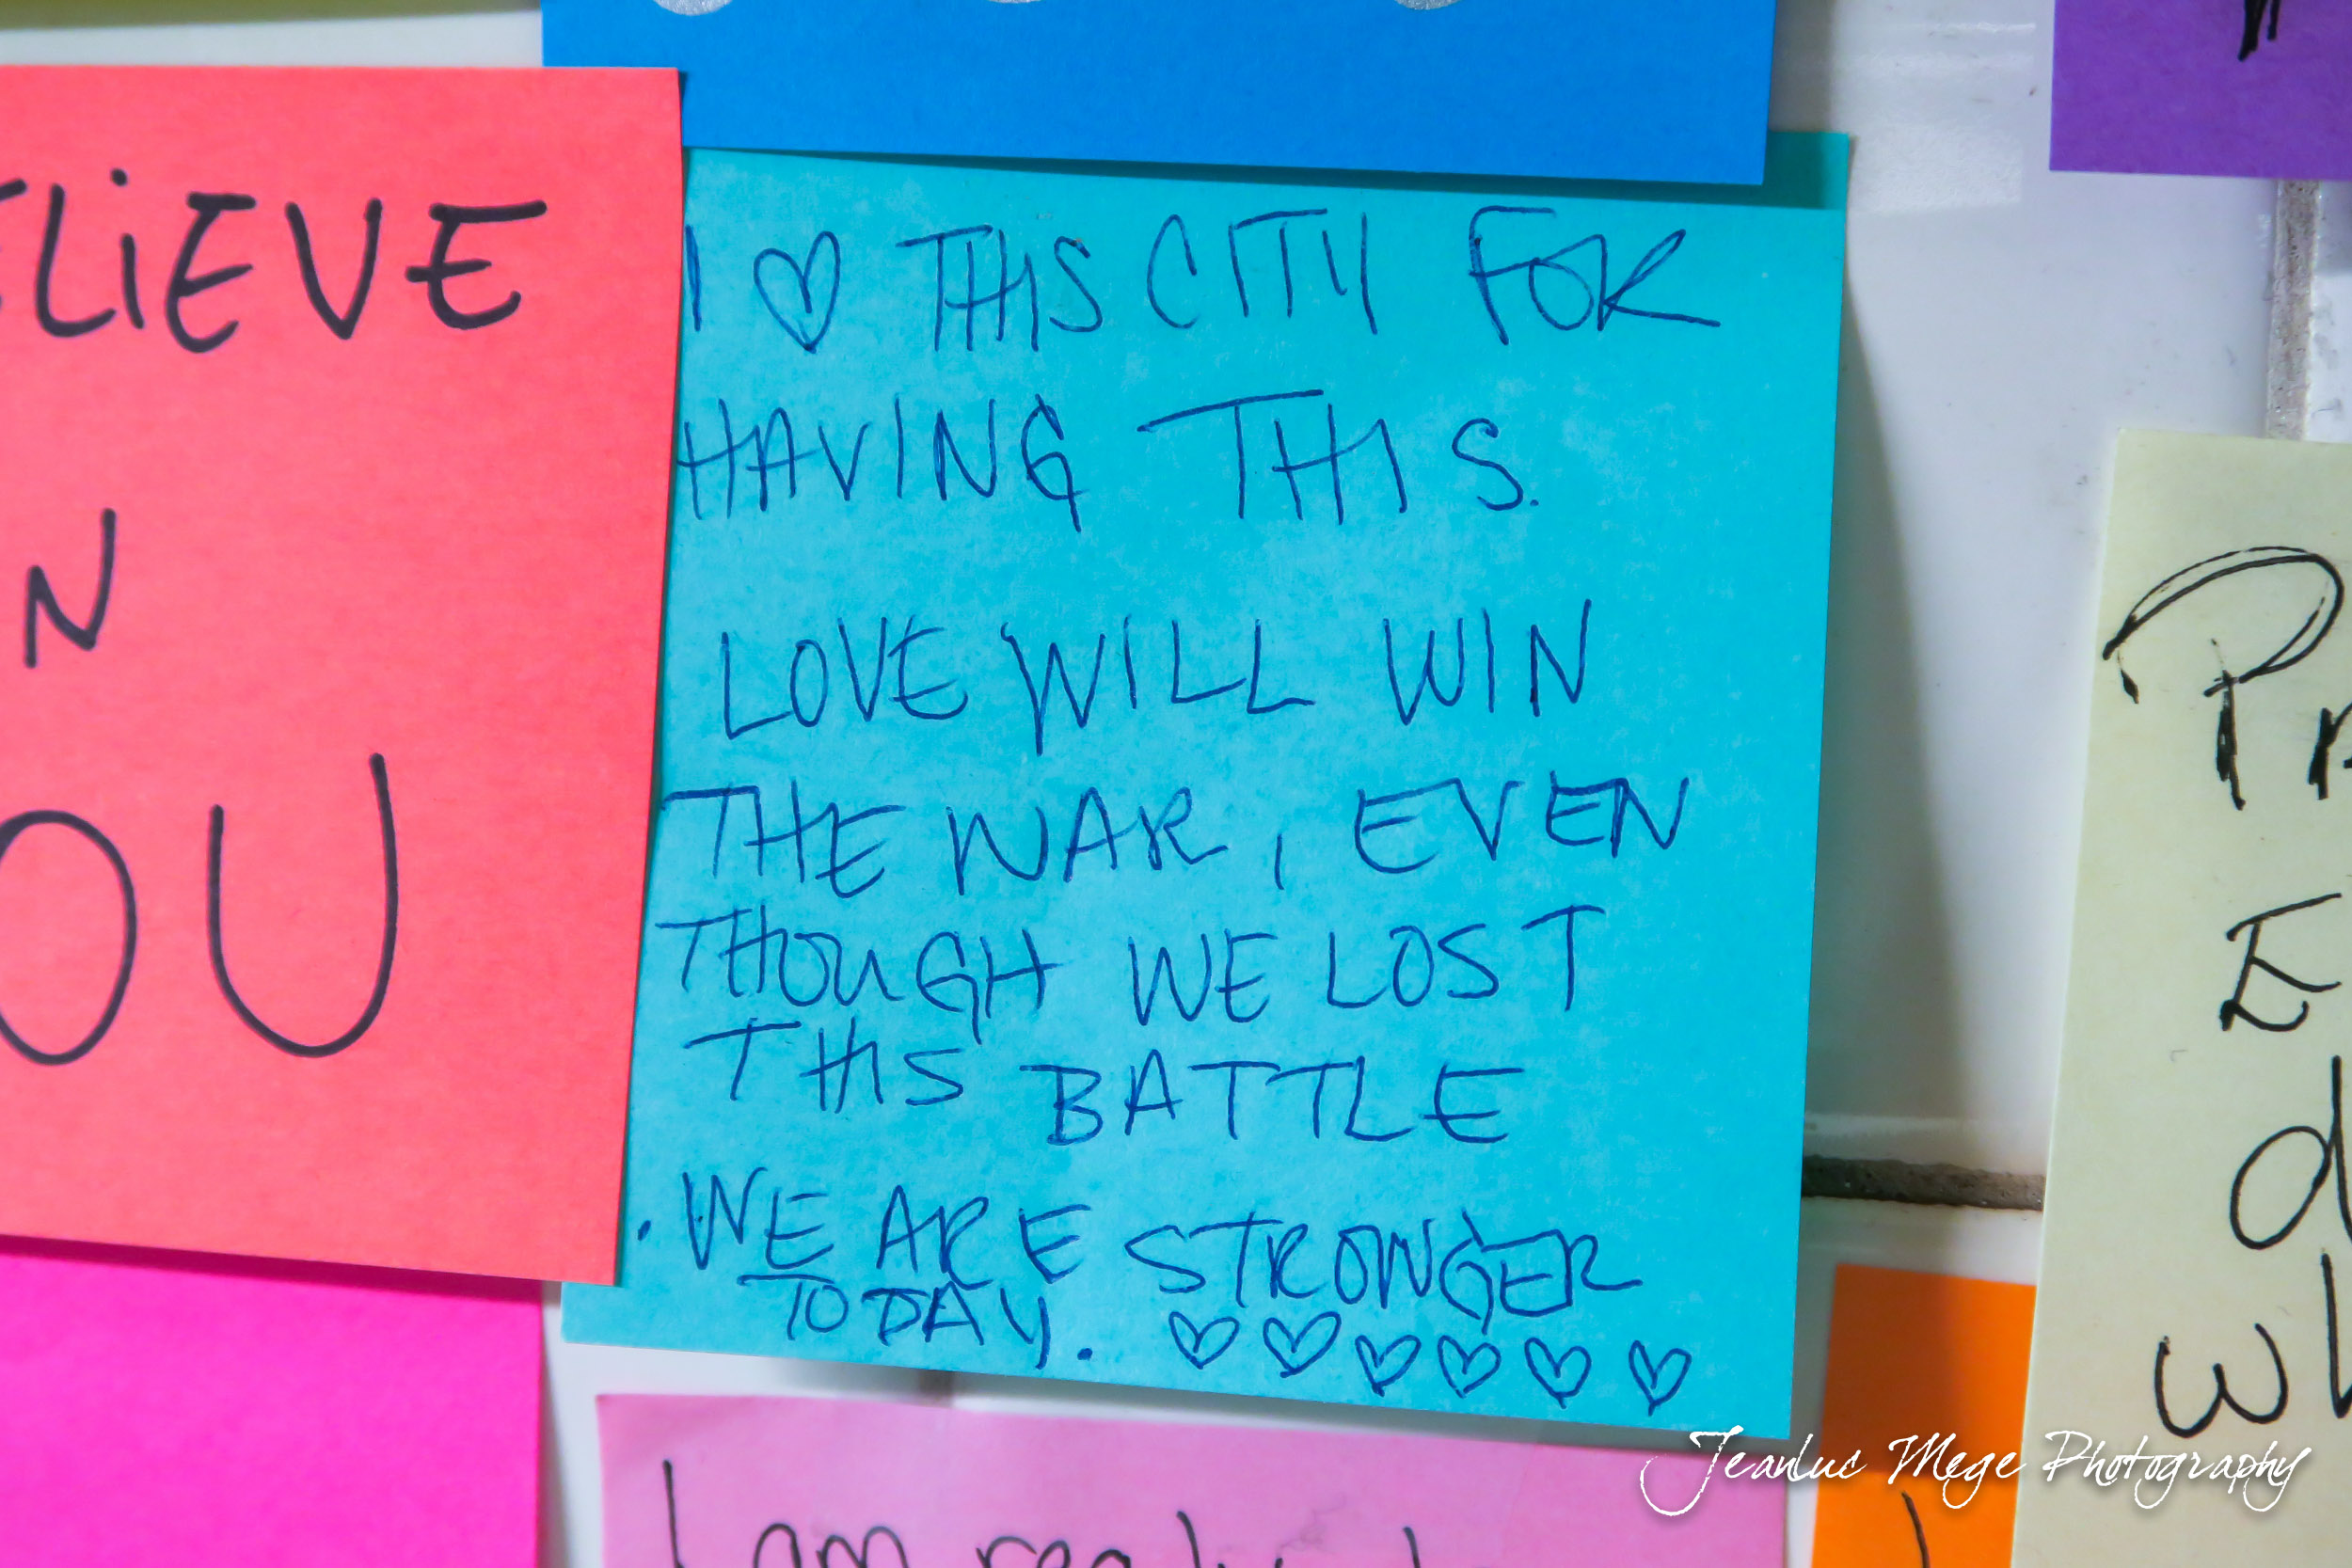 ELIEVE
N
OU
I ♡ THIS CITY FOR
HAVING THIS.
LOVE WILL WIN
THE WAR, EVEN
THOUGH WE LOST
THIS BATTLE
. WE ARE STRONGER
TODAY. ♡ ♡ ♡ ♡ ♡ ♡
I am ready
E
d
w
Jeanluc Mege Photography